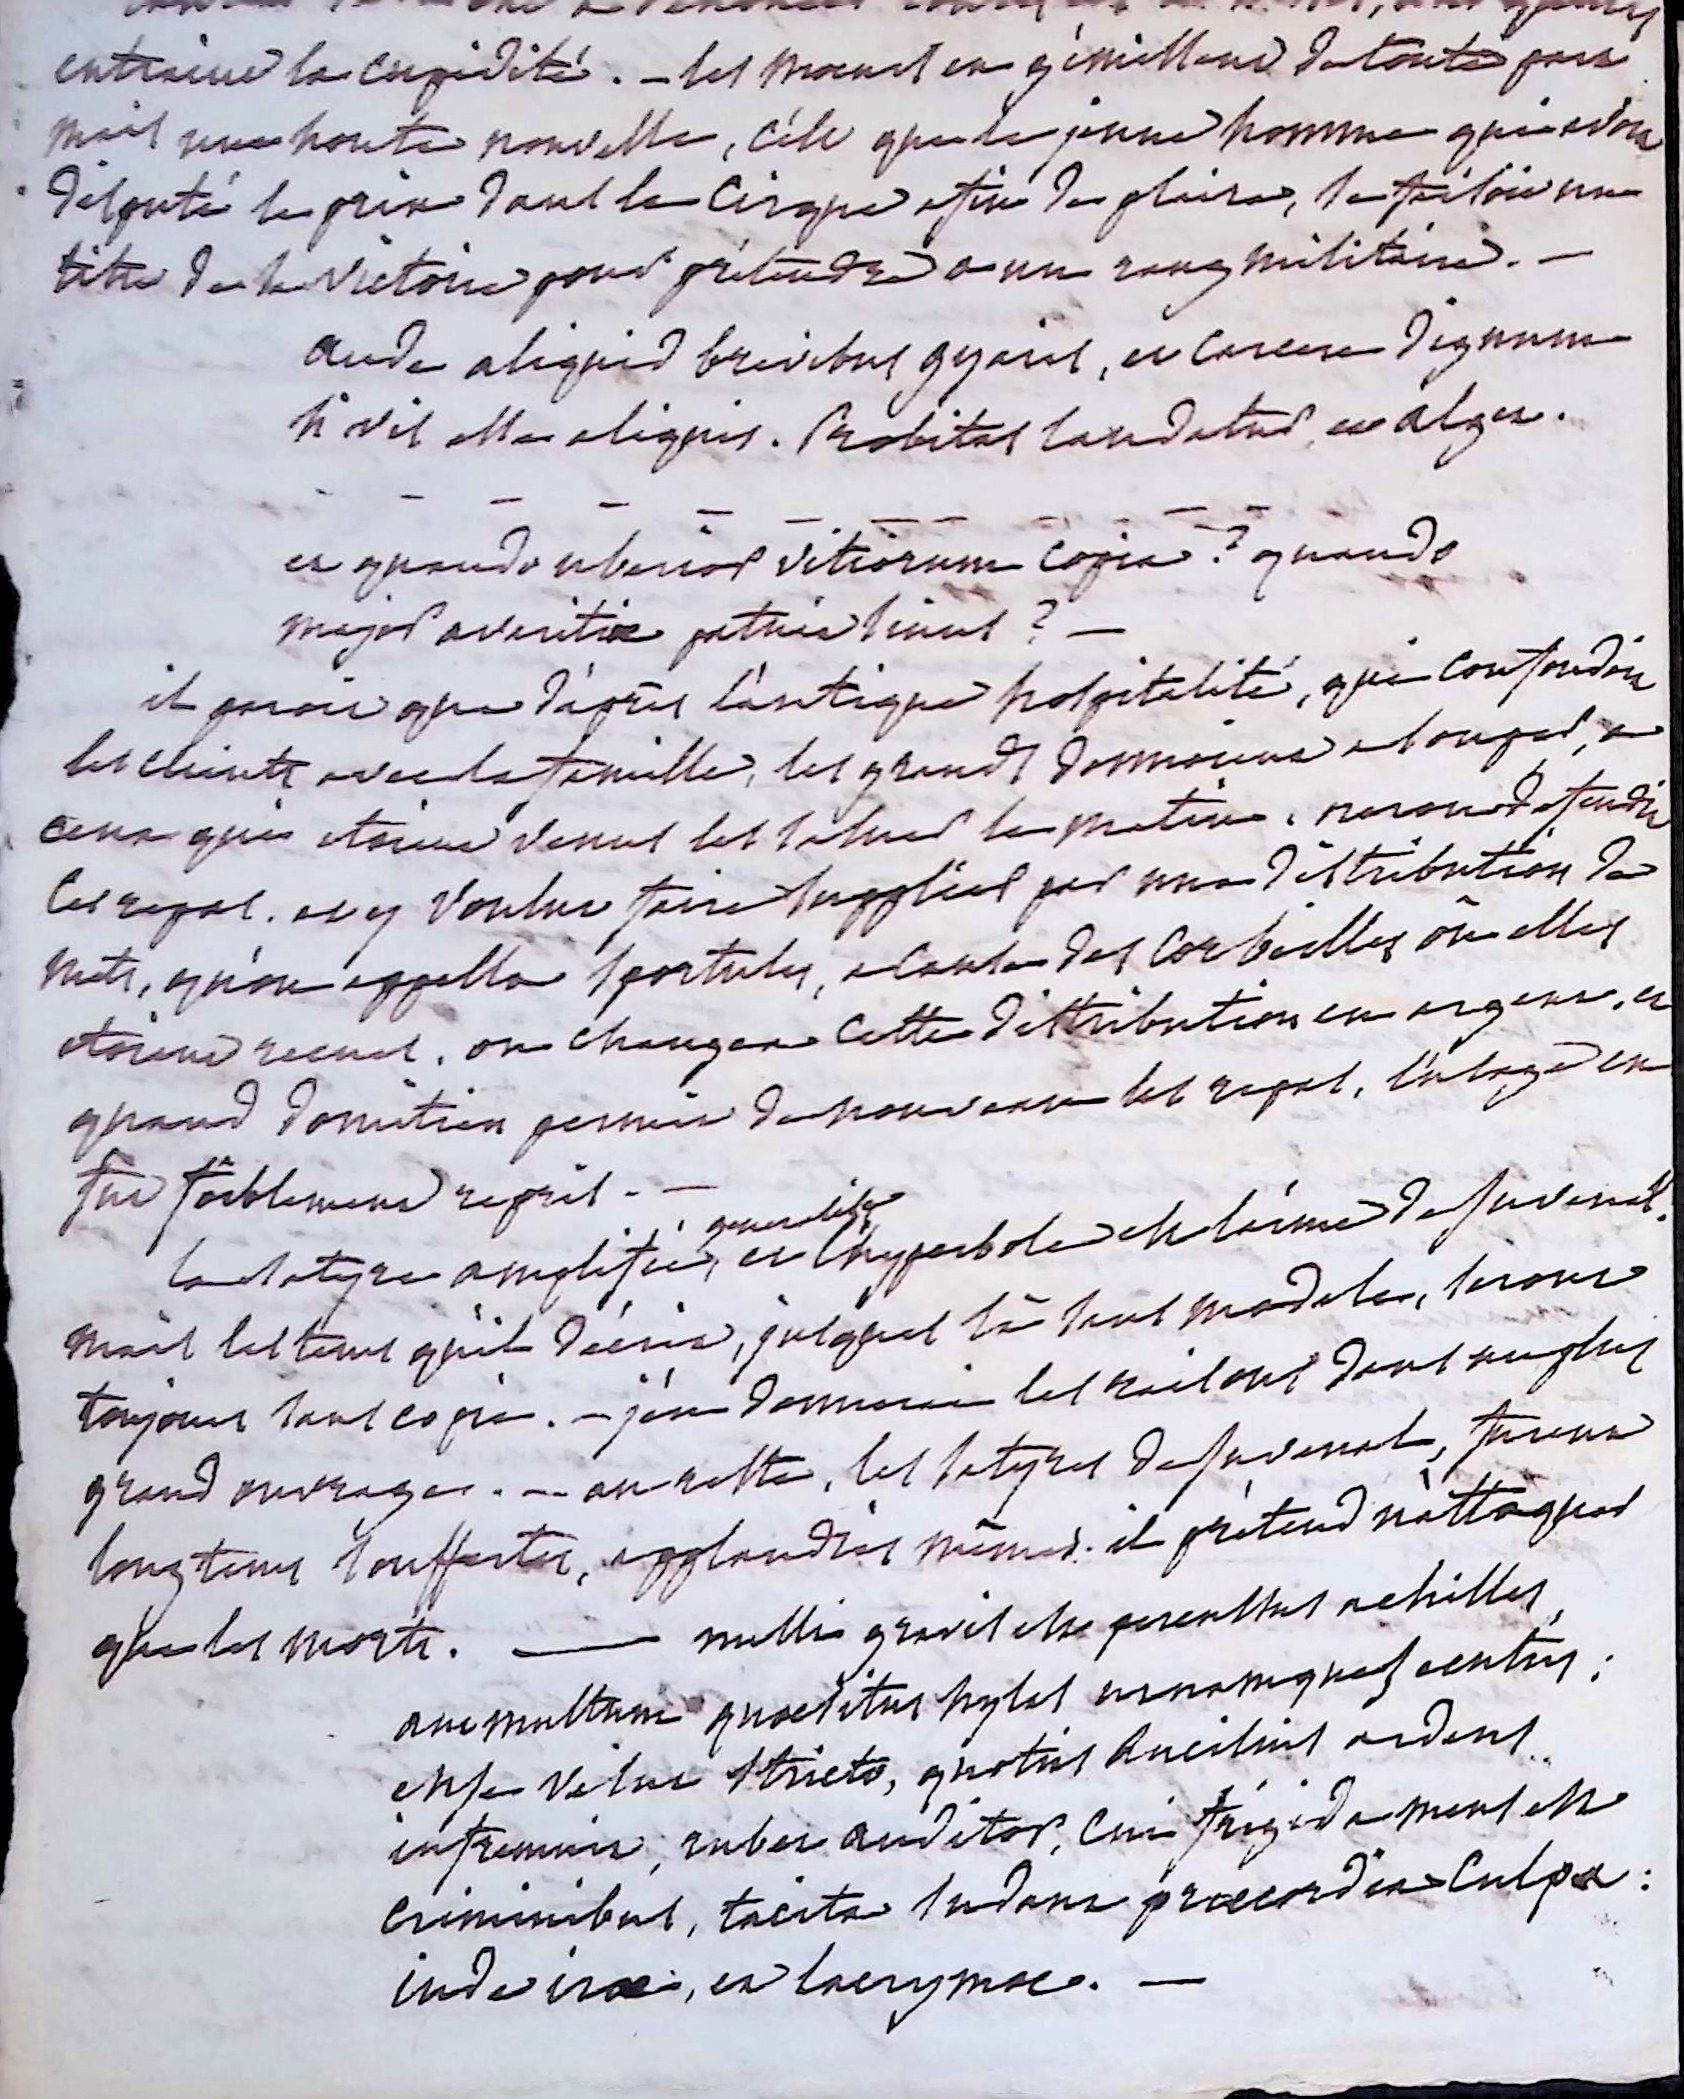 entraine la cupidité. — les moeurs en gémissent de toute part
mais une honte nouvelle, c'est que le jeune homme qui avoit
disputé le prix dans le cirque afin de plaire, se faisoit un
titre de sa victoire pour prétendre a un rang militaire. —
aude aliquid brevibus gyaris, et carcere dignum
si vis esse aliquis. Probitas laudatur, et alget.
— — — — — — — — — — —
et quando uberior vitiorum copia? quando
major avaritiæ patuit sinus? —
il paroit que d'après l'antique hospitalité, qui confondoit
les clients avec la famille, les grands donnoient a souper, a
ceux qui etoient venus les saluer le matin. neron defendit
ces repas. et y voulut faire suppléer par une distribution de
mets, qu'on appella sportules, a cause des corbeilles où elles
etoient reçues. on changea cette distribution en argent, et
quand domitien permit de nouveau les repas, l'usage en
fut foiblement repris. —
la satyre amplifie, generalise,
et l'hyperbole est l'arme de Juvenal.
mais les tems qu'il décrit, jusques là sans modele, seront
toujours sans copie. — j'en donnerai les raisons dans un plus
grand ouvrage. — au reste, les satyres de Juvenal, furent
longtems souffertes, applaudies même. il prétend n'attaquer
que les morts. — nulli gravis est percussus achilles,
aut multum quæsitus hylas urnamque secutus:
ense velut stricto, quoties Lucilius ardens
infremuit, rubet auditor, cui frigida mens est
criminibus, tacita sudant præcordia culpa:
inde iræ, et lacrymæ. —